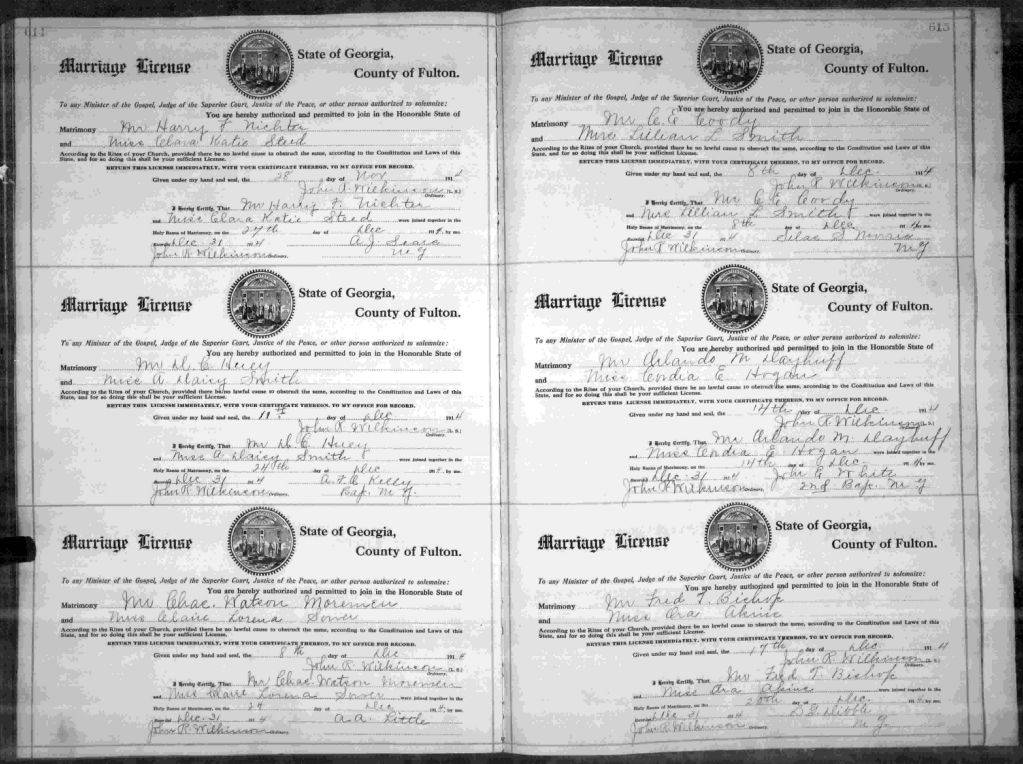 614
Marriage License
State of Georgia,
County of Fulton.
To any Minister of the Gospel, Judge of the Superior Court, Justice of the Peace, or other person authorized to solemnize:
You are hereby authorized and permitted to join in the Honorable State of
Matrimony Mr Harry F. Nichter
and Miss Clara Katie Steed
According to the Rites of your Church, provided there be no lawful cause to obstruct the same, according to the Constitution and Laws of this
State, and for so doing this shall be your sufficient License.
RETURN THIS LICENSE IMMEDIATELY, WITH YOUR CERTIFICATE THEREON, TO MY OFFICE FOR RECORD.
Given under my hand and seal, the 28 day of Nov 1914
John R. Wilkinson (L. S.)
Ordinary.
I Hereby Certify, That Mr Harry F. Nichter
and Miss Clara Katie Steed were joined together in the
Holy Banns of Matrimony, on the 27th day of Dec 1914, by me.
Recorded Dec 31 1914 A. J.
John R Wilkinson Ordinary. M G
Marriage License
State of Georgia,
County of Fulton.
To any Minister of the Gospel, Judge of the Superior Court, Justice of the Peace, or other person authorized to solemnize:
You are hereby authorized and permitted to join in the Honorable State of
Matrimony Mr D. C. Huey
and Miss A Daisy Smith
According to the Rites of your Church, provided there be no lawful cause to obstruct the same, according to the Constitution and Laws of this
State, and for so doing this shall be your sufficient License.
RETURN THIS LICENSE IMMEDIATELY, WITH YOUR CERTIFICATE THEREON, TO MY OFFICE FOR RECORD.
Given under my hand and seal, the 11th day of Dec 1914
John R. Wilkinson (L. S.)
Ordinary.
I Hereby Certify, That Mr D. C. Huey
and Miss A. Daisy Smith were joined together in the
Holy Banns of Matrimony, on the 24th day of Dec 1914, by me.
Recorded Dec 31 1914 A. F. C. Kelly
John R Wilkinson Ordinary. Bap. M. G.
Marriage License
State of Georgia,
County of Fulton.
To any Minister of the Gospel, Judge of the Superior Court, Justice of the Peace, or other person authorized to solemnize:
You are hereby authorized and permitted to join in the Honorable State of
Matrimony Mr Chas. Watson Moremen
and Miss Claire Lorena Sower
According to the Rites of your Church, provided there be no lawful cause to obstruct the same, according to the Constitution and Laws of this
State, and for so doing this shall be your sufficient License.
RETURN THIS LICENSE IMMEDIATELY, WITH YOUR CERTIFICATE THEREON, TO MY OFFICE FOR RECORD.
Given under my hand and seal, the 8th day of Dec 1914
John R. Wilkinson (L. S.)
Ordinary.
I Hereby Certify, That Mr Chas. Watson Moremen
and Miss Claire Lorena Sower were joined together in the
Holy Banns of Matrimony, on the 24 day of Dec 1914, by me.
Recorded Dec 31 1914 A. A. Little
John R. Wilkinson Ordinary.
615
Marriage License
State of Georgia,
County of Fulton.
To any Minister of the Gospel, Judge of the Superior Court, Justice of the Peace, or other person authorized to solemnize:
You are hereby authorized and permitted to join in the Honorable State of
Matrimony Mr C. C. Coody
and Miss Lillian L Smith
According to the Rites of your Church, provided there be no lawful cause to obstruct the same, according to the Constitution and Laws of this
State, and for so doing this shall be your sufficient License.
RETURN THIS LICENSE IMMEDIATELY, WITH YOUR CERTIFICATE THEREON, TO MY OFFICE FOR RECORD.
Given under my hand and seal, the 8th day of Dec. 1914
John R. Wilkinson (L. S.)
Ordinary.
I Hereby Certify, That Mr C. C. Coody
and Miss Lillian L Smith were joined together in the
Holy Banns of Matrimony, on the 8th day of Dec 1914, by me.
Recorded Dec 31 1914 Silas
John R Wilkinson Ordinary. M G
Marriage License
State of Georgia,
County of Fulton.
To any Minister of the Gospel, Judge of the Superior Court, Justice of the Peace, or other person authorized to solemnize:
You are hereby authorized and permitted to join in the Honorable State of
Matrimony Mr Orlando M Dayhuff
and Miss Cordia E Hogan
According to the Rites of your Church, provided there be no lawful cause to obstruct the same, according to the Constitution and Laws of this
State, and for so doing this shall be your sufficient License.
RETURN THIS LICENSE IMMEDIATELY, WITH YOUR CERTIFICATE THEREON, TO MY OFFICE FOR RECORD.
Given under my hand and seal, the 14th day of Dec 1914
John R. Wilkinson (L. S.)
Ordinary.
I Hereby Certify, That Mr Orlando M. Dayhuff
and Miss Cordia E Hogan were joined together in the
Holy Banns of Matrimony, on the 14th day of Dec. 1914, by me.
Recorded Dec. 31 1914 John E White
John R Wilkinson Ordinary. 2nd Bap. M G
Marriage License
State of Georgia,
County of Fulton.
To any Minister of the Gospel, Judge of the Superior Court, Justice of the Peace, or other person authorized to solemnize:
You are hereby authorized and permitted to join in the Honorable State of
Matrimony Mr Fred T. Bishop
and Miss Ora Akins
According to the Rites of your Church, provided there be no lawful cause to obstruct the same, according to the Constitution and Laws of this
State, and for so doing this shall be your sufficient License.
RETURN THIS LICENSE IMMEDIATELY, WITH YOUR CERTIFICATE THEREON, TO MY OFFICE FOR RECORD.
Given under my hand and seal, the 17th day of Dec 1914
John R. Wilkinson (L. S.)
Ordinary.
I Hereby Certify, That Mr Fred T. Bishop
and Miss Ora Akins were joined together in the
Holy Banns of Matrimony, on the 20th day of Dec. 1914, by me.
Recorded Dec 31 1914
John R. Wilkinson Ordinary. M. G.